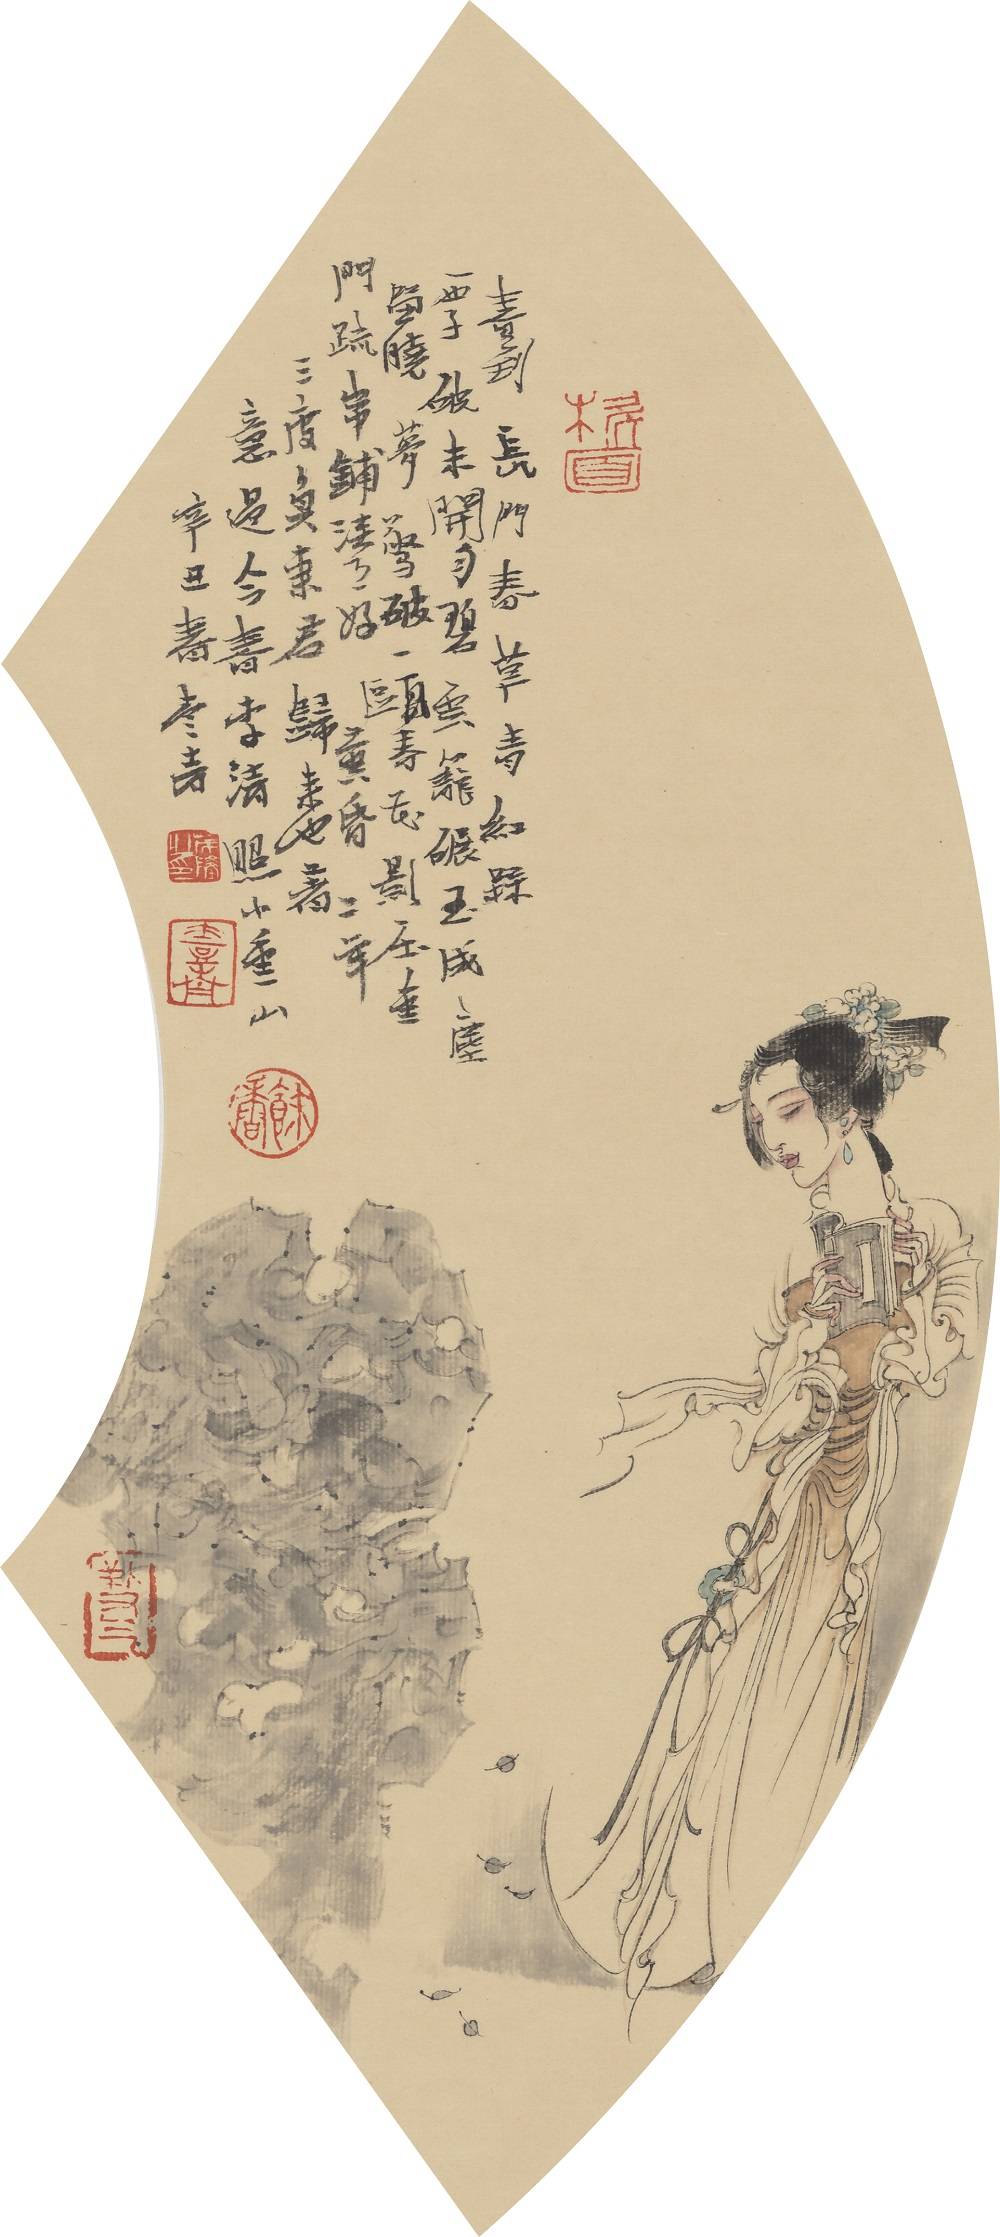 春到長門春草青紅梅
些子破未開勻碧雲籠碾玉成塵
留曉夢驚破一甌春花影壓重
門疏簾鋪淡月好黃昏二年
三度負東君歸來也著
意過今春李清照小重山
辛丑春
餘香